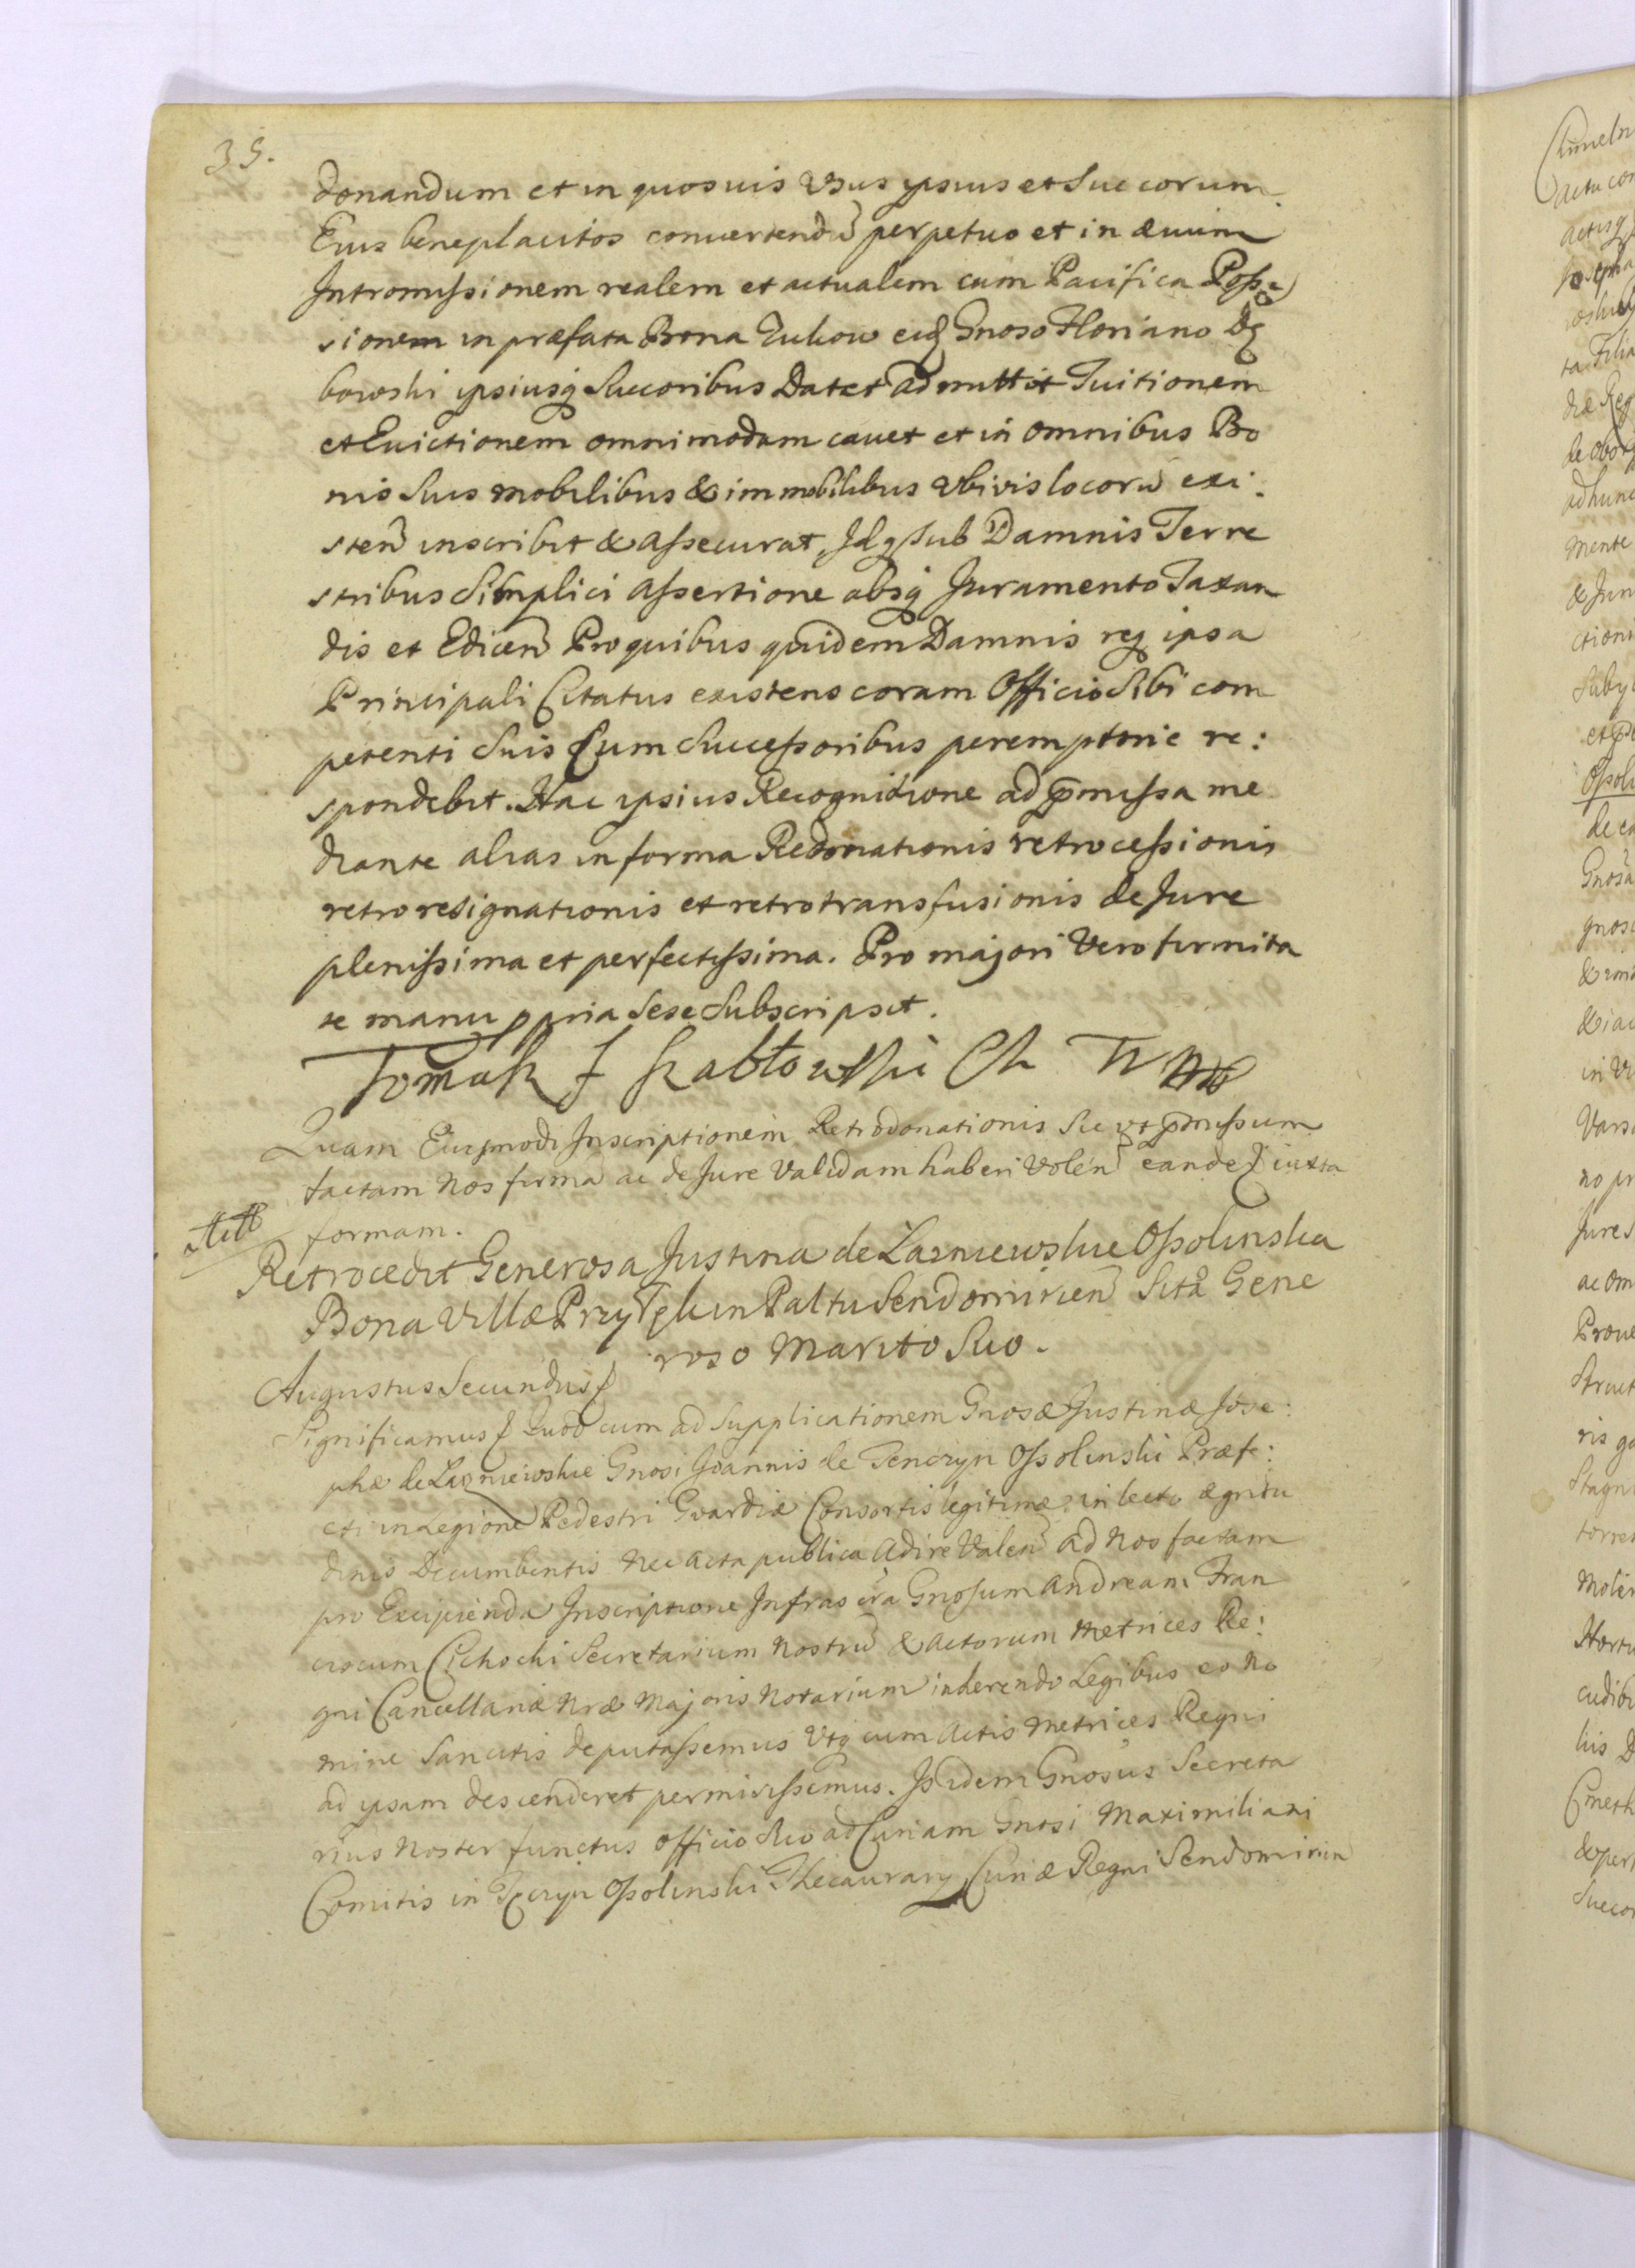 35.
donandum et in quosuis Usus ipsius et Succorum
Eius beneplacitos conuertendũ perpetuo et in æuum
Intromissionem realem et actualem cum Pacifica Posse
sionem in præfata Bona Zukow eidẽ Gnoso Floriano Dę
bowski ipsiusq Succoribus Dat et admittit Tuitionem
et Euictionem omnimodam cauet et in omnibus Bo
nis Suis mobilibus & immobilibus Vbivis locorũ exi:
sten̄ inscribit & assecurat, Idq Sub Damnis Terre
stribus Simplici assertione absq Juramento Taxan
dis et Edicen̄ Pro quibus quidem Damnis req ipsa
Principali Citatus existens coram Officio Sibi com
petenti Suis Cum Successoribus peremptorie re:
spondebit. Hac ipsius Recognitione ad p̄missa me
diante alias in forma Redonationis retrocessionis
retroresignationis et retrotransfusionis de Jure
plenissima et perfectissima. Pro majori Vero firmita
te manu ppria Sese Subscripsit.
Quam Eiusmodi Inscriptionem Retrodonationis Sic vt p̄missum
factam Nos firmã ac de Jure Validam haberi Volen̄ eandẽ iuxta
formam.
Retrocedit Generosa Justina de Łazniewskie Ossolinska
Bona Villæ Przytyk in Paltu Sendomirien̄ Sita Gene
roso Marito Suo.
Augustus Secundus
Significamus Quod cum ad Supplicationem Gnosæ Justinæ Jose:
phæ de Łazniewskie Gnosi Joannis de Tenczyn Ossolinski Præfe:
cti in Legione Pedestri Gvardiæ Consortis legitimæ in lecto ægritu
dinis Decumbentis nec acta publica adire Valen̄ ad Nos factam
pro Excipienda Inscriptione Infrascr̄a Gnosum Andream Fran
ciscum Cichocki Secretarium Nostrũ & actorum Metrices Re:
gni Cancellariæ Nræ Majoris Notarium inhærendo Legibus eo No
mine Sancitis deputassemus Vtq cum actis Metrices Regni
ad ipsam descenderet permisissemus. Is idem Gnosus Secreta
rius Noster functus officio Suo ad Curiam Gnosi Maximiliani
Comitis in Tęczyn Ossolinski Thesaurarij Curiæ Regni Sendomirien̄